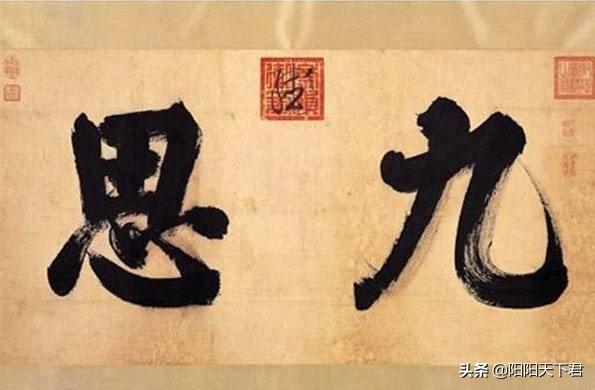 九思
头条 @阳阳天下君